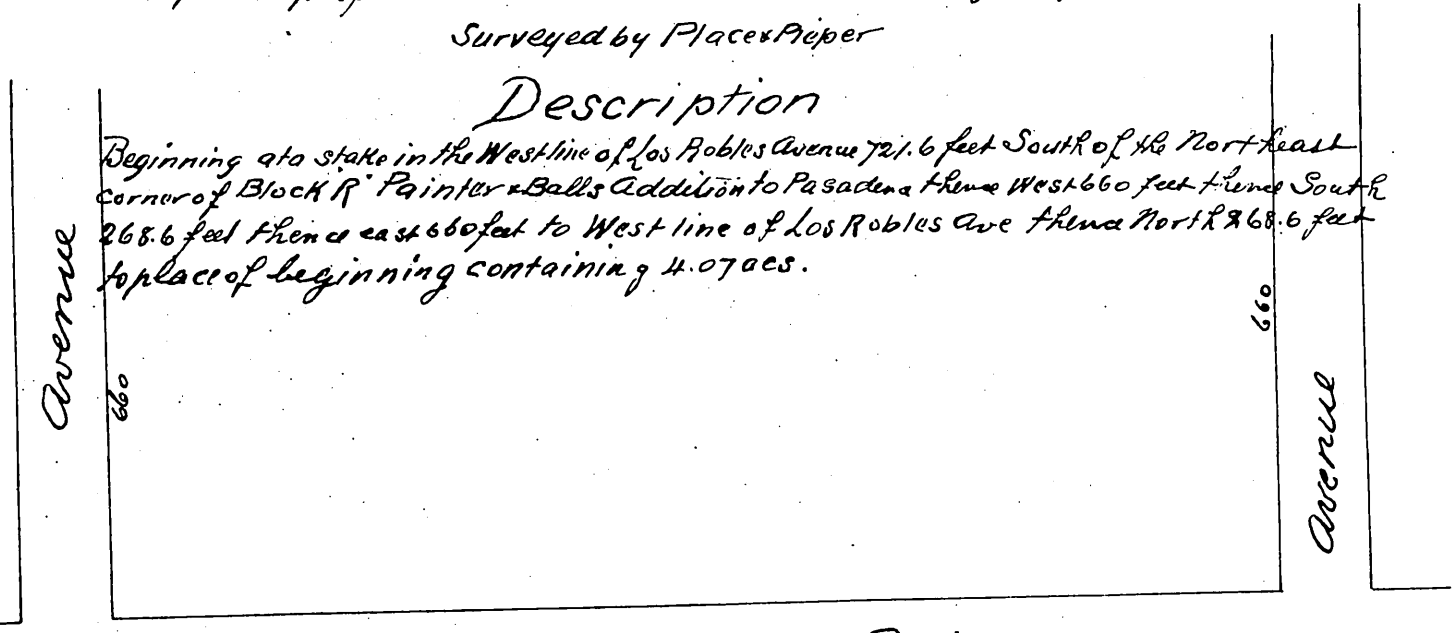 Surveyed by Place & Pieper
Description
Beginning at a stake in the West line of Los Robles Avenue 721.6 feet South of the Northeast
corner of Block R Painter & Balls Addition to Pasadena thence West 660 feet thence South
268.6 feet thence east 660 feet to West line of Los Robles Ave thence North 268.6 feet
to place of beginning containing 4.07 acs.
Avenue
660
660
Avenue